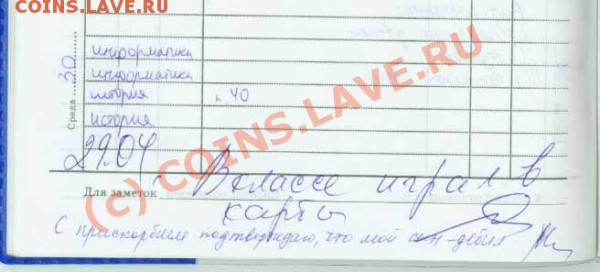 COINS.LAVE.RU
30
Среда
информатика
информатика
история п. 40
история
29.04.
Для заметок В классе играл в
карты
С прискорбием подтверждаю, что мой сын - дебил
(c) COINS.LAVE.RU